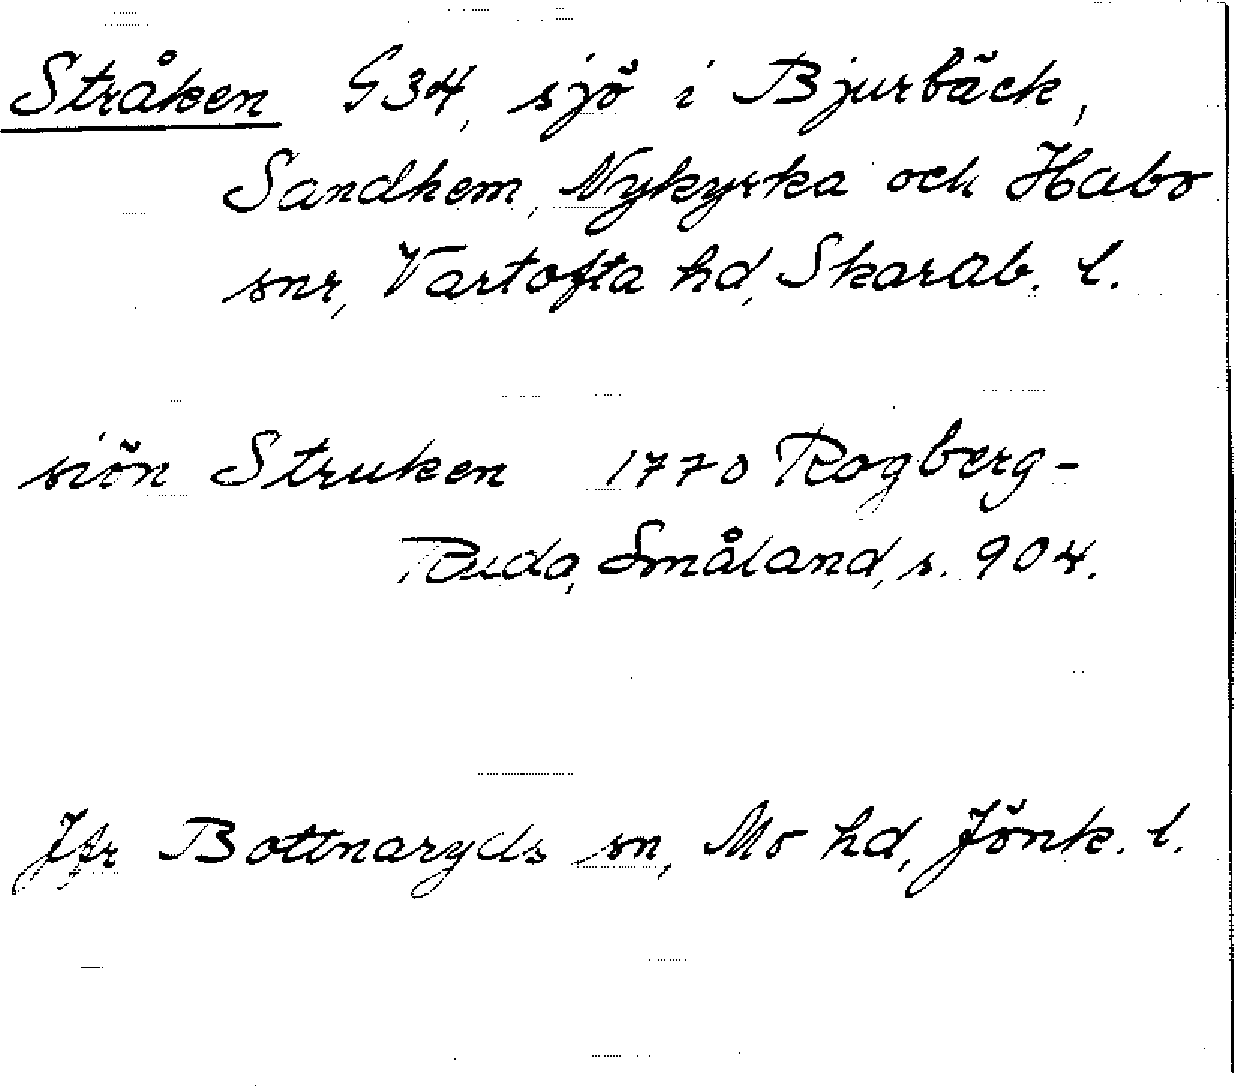 Stråken G34, sjö i Bjurbäck,
Sandhem, Nykyrka och Habo
snr, Vartofta hd, Skarab. l.
siön Struken 1770 Rogberg-
Ruda, Småland, s. 904.
Jfr Bottnaryds sn, Mo hd, Jönk. l.